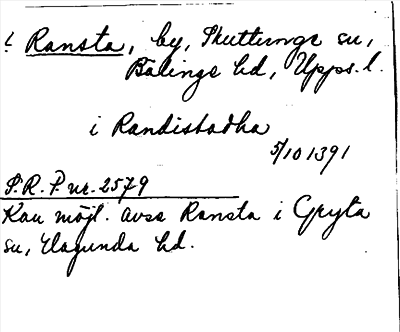 Ransta, by, Skuttunge sn,
Bälinge hd, Upps. l.
i Randistadha
5/10 1391
S.R.P. nr. 2579
Kan möjl. avse Ransta i Gryta
sn, Hagunda hd.